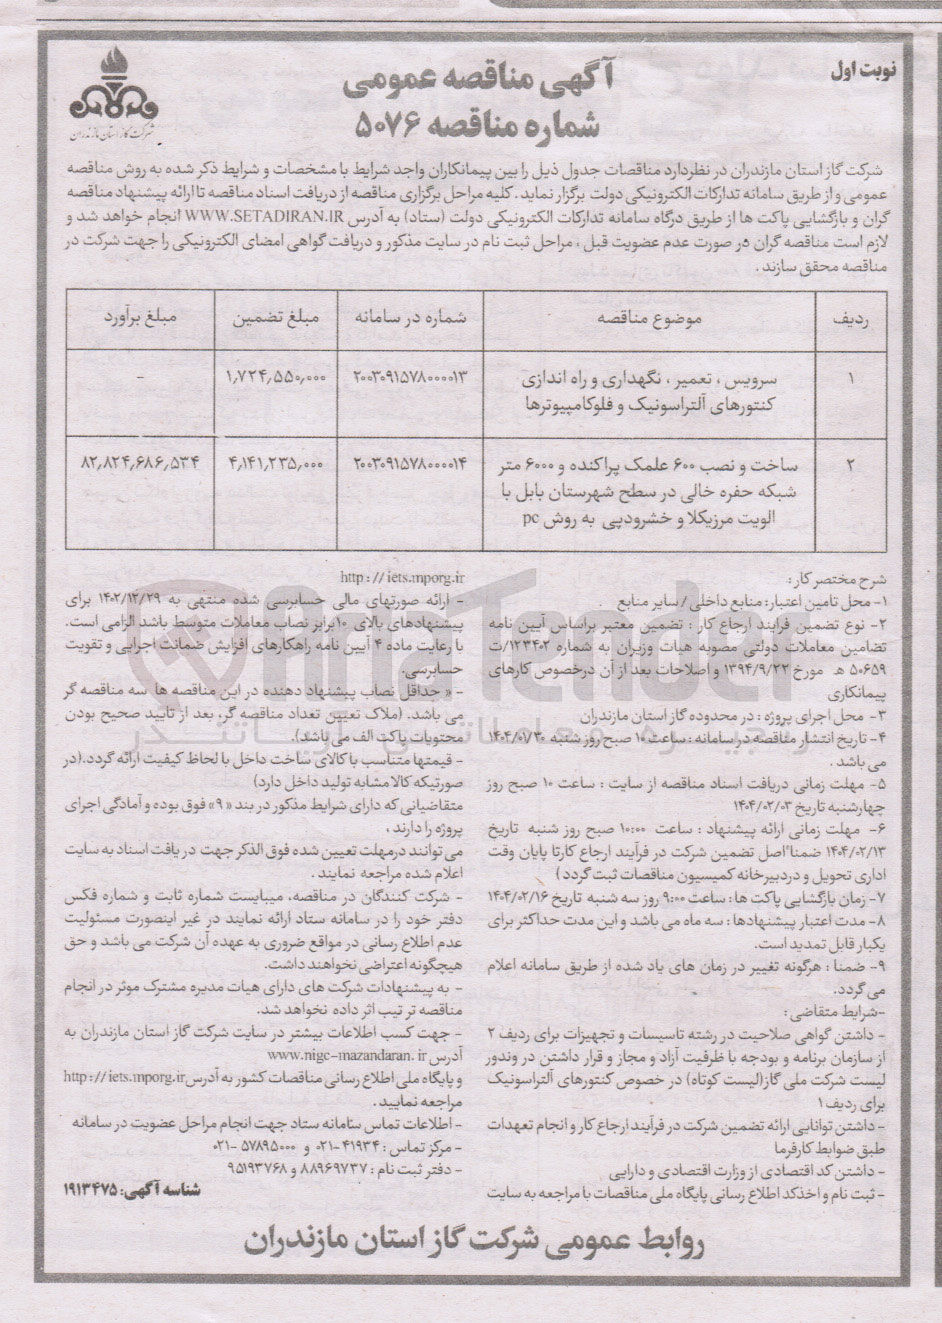 نوبت اول
آگهی مناقصه عمومی
شماره مناقصه ۵۰۷۶
شرکت گاز استان مازندران
شرکت گاز استان مازندران در نظر دارد مناقصات جدول ذیل را بین پیمانکاران واجد شرایط با مشخصات و شرایط ذکر شده به روش مناقصه
عمومی و از طریق سامانه تدارکات الکترونیکی دولت برگزار نماید. کلیه مراحل برگزاری مناقصه از دریافت اسناد مناقصه تا ارائه پیشنهاد مناقصه
گران و بازگشایی پاکت ها از طریق درگاه سامانه تدارکات الکترونیکی دولت (ستاد) به آدرس WWW.SETADIRAN.IR انجام خواهد شد و
لازم است مناقصه گران در صورت عدم عضویت قبل، مراحل ثبت نام در سایت مذکور و دریافت گواهی امضای الکترونیکی را جهت شرکت در
مناقصه محقق سازند.
ردیف موضوع مناقصه شماره در سامانه مبلغ تضمین مبلغ برآورد
۱ سرویس، تعمیر، نگهداری و راه اندازی ۲۰۰۳۰۹۱۵۷۸۰۰۰۰۱۳ ۱,۷۲۴,۵۵۰,۰۰۰ -
کنتورهای آلتراسونیک و فلوکامپیوترها
۲ ساخت و نصب ۶۰۰ علمک پراکنده و ۶۰۰۰ متر ۲۰۰۳۰۹۱۵۷۸۰۰۰۰۱۴ ۴,۱۴۱,۲۳۵,۰۰۰ ۸۲,۸۲۴,۶۸۶,۵۳۴
شبکه حفره خالی در سطح شهرستان بابل با
الویت مرزیکلا و خشرودپی به روش pc
شرح مختصر کار:
۱- محل تامین اعتبار: منابع داخلی / سایر منابع
۲- نوع تضمین فرایند ارجاع کار : تضمین معتبر براساس آیین نامه
تضامین معاملات دولتی مصوبه هیات وزیران به شماره ۱۲۳۴۰۲/ت
۵۰۶۵۹ هـ مورخ ۱۳۹۴/۹/۲۲ و اصلاحات بعد از آن درخصوص کارهای
پیمانکاری
۳- محل اجرای پروژه : در محدوده گاز استان مازندران
۴- تاریخ انتشار مناقصه در سامانه : ساعت ۱۰ صبح روز شنبه ۱۴۰۴/۰۱/۳۰
می باشد .
۵- مهلت زمانی دریافت اسناد مناقصه از سایت : ساعت ۱۰ صبح روز
چهارشنبه تاریخ ۱۴۰۴/۰۲/۰۳
۶- مهلت زمانی ارائه پیشنهاد : ساعت ۱۰:۰۰ صبح روز شنبه تاریخ
۱۴۰۴/۰۲/۱۳ ضمنا" اصل تضمین شرکت در فرآیند ارجاع کار تا پایان وقت
اداری تحویل و در دبیرخانه کمیسیون مناقصات ثبت گردد )
۷- زمان بازگشایی پاکت ها : ساعت ۹:۰۰ روز سه شنبه تاریخ ۱۴۰۴/۰۲/۱۶
۸- مدت اعتبار پیشنهادها : سه ماه می باشد و این مدت حداکثر برای
یکبار قابل تمدید است.
۹- ضمنا : هرگونه تغییر در زمان های یاد شده از طریق سامانه اعلام
می گردد.
-شرایط متقاضی :
- داشتن گواهی صلاحیت در رشته تاسیسات و تجهیزات برای ردیف ۲
از سازمان برنامه و بودجه با ظرفیت آزاد و مجاز و قرار داشتن در وندور
لیست شرکت ملی گاز(لیست کوتاه) در خصوص کنتورهای آلتراسونیک
برای ردیف ۱
- داشتن توانایی ارائه تضمین شرکت در فرآیند ارجاع کار و انجام تعهدات
طبق ضوابط کارفرما
- داشتن کد اقتصادی از وزارت اقتصادی و دارایی
- ثبت نام و اخذکد اطلاع رسانی پایگاه ملی مناقصات با مراجعه به سایت
http://iets.mporg.ir
- ارائه صورتهای مالی حسابرسی شده منتهی به ۱۴۰۲/۱۲/۲۹ برای
پیشنهادهای بالای ۱۰برابر نصاب معاملات متوسط باشد الزامی است.
با رعایت ماده ۴ آیین نامه راهکارهای افزایش ضمانت اجرایی و تقویت
حسابرسی.
- « حداقل نصاب پیشنهاد دهنده در این مناقصه ها سه مناقصه گر
می باشد. (ملاک تعیین تعداد مناقصه گر، بعد از تایید صحیح بودن
محتویات پاکت الف می باشد).
- قیمتها متناسب با کالای ساخت داخل با لحاظ کیفیت ارائه گردد.(در
صورتیکه کالا مشابه تولید داخل دارد)
متقاضیانی که دارای شرایط مذکور در بند «۹» فوق بوده و آمادگی اجرای
پروژه را دارند ،
می توانند درمهلت تعیین شده فوق الذکر جهت دریافت اسناد به سایت
اعلام شده مراجعه نمایند .
- شرکت کنندگان در مناقصه، میبایست شماره ثابت و شماره فکس
دفتر خود را در سامانه ستاد ارائه نمایند در غیر اینصورت مسئولیت
عدم اطلاع رسانی در مواقع ضروری به عهده آن شرکت می باشد و حق
هیچگونه اعتراضی نخواهند داشت.
- به پیشنهادات شرکت های دارای هیات مدیره مشترک موثر در انجام
مناقصه تر تیب اثر داده نخواهد شد.
- جهت کسب اطلاعات بیشتر در سایت شرکت گاز استان مازندران به
آدرس www.nigc-mazandaran.ir
و پایگاه ملی اطلاع رسانی مناقصات کشور به آدرس http://iets.mporg.ir
مراجعه نمایید .
- اطلاعات تماس سامانه ستاد جهت انجام مراحل عضویت در سامانه
- مرکز تماس : ۴۱۹۳۴-۰۲۱ و ۵۷۸۹۵۰۰۰-۰۲۱
- دفتر ثبت نام : ۸۸۹۶۹۷۳۷ و ۹۵۱۹۳۷۶۸
شناسه آگهی: ۱۹۱۳۴۷۵
روابط عمومی شرکت گاز استان مازندران